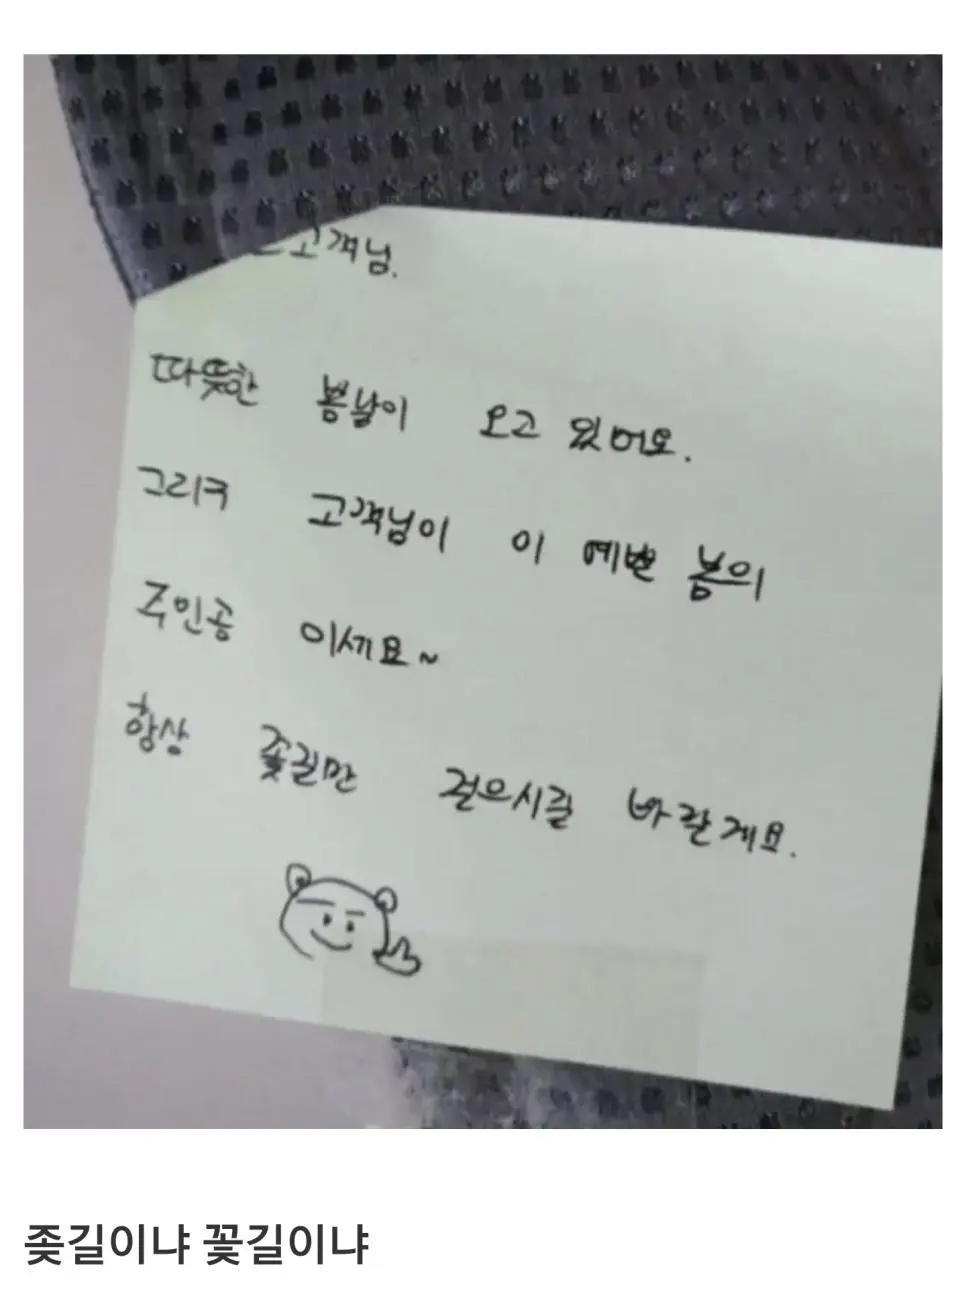 고객님.
따뜻한 봄날이 오고 있어요.
그리구 고객님이 이 예쁜 봄의
주인공 이세요~
항상 꽃길만 걸으시길 바랄게요.
좆길이냐 꽃길이냐